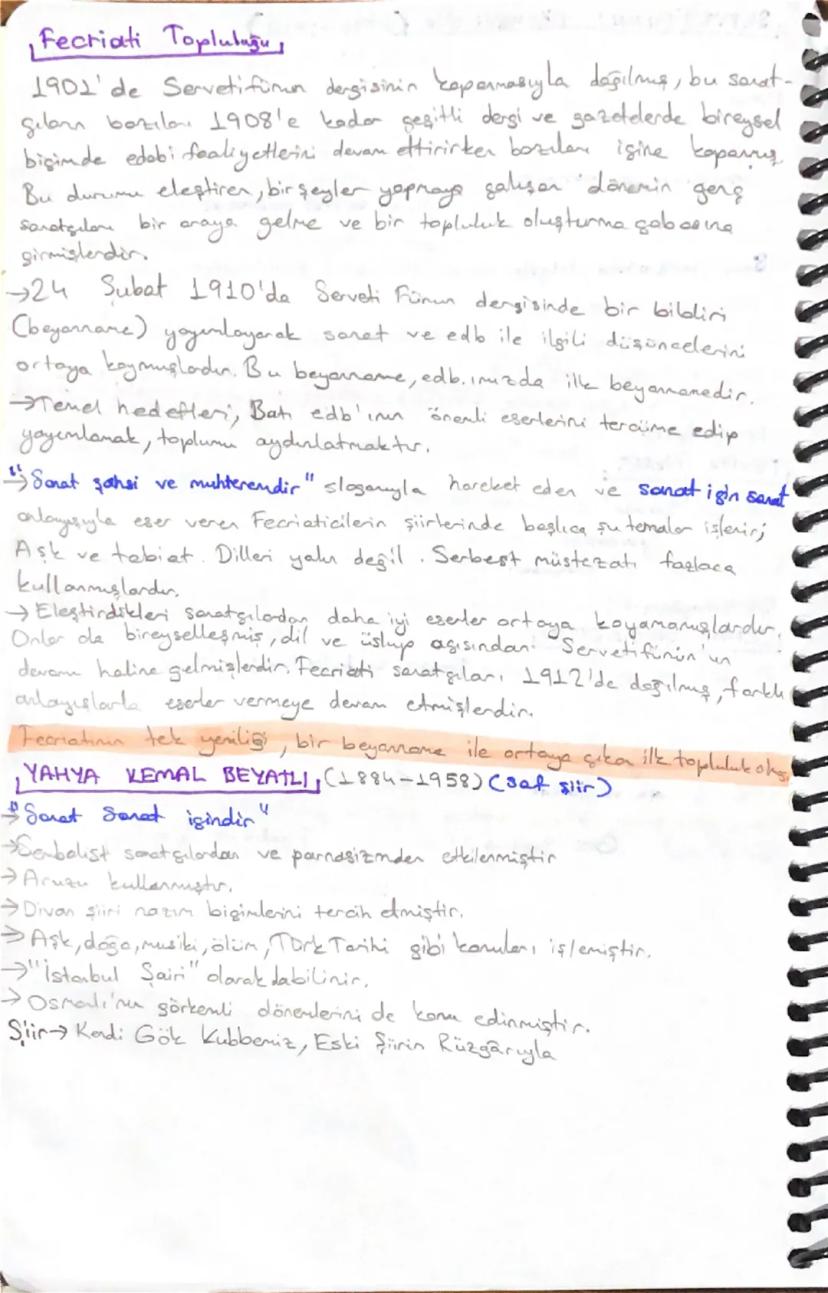 Fecriati Topluluğu
1901'de Servetifünun dergisinin kapanmasıyla dağılmış, bu sanat-
çıların bazıları 1908'e kadar çeşitli dergi ve gazetelerde bireysel
biçimde edebi faaliyetlerini devam ettirirken bazıları içine kapanmış.
Bu durumu eleştiren, bir şeyler yapmaya çalışan dönemin genç
sanatçıları bir araya gelme ve bir topluluk oluşturma çabasına
girmişlerdir.
→24 Şubat 1910'da Serveti Fünun dergisinde bir bildiri
(beyanname) yayımlayarak sanat ve edb ile ilgili düşüncelerini
ortaya koymuşlardır. Bu beyanname, edb.ımızda ilk beyannamedir.
→Temel hedefleri, Batı edb'ının önemli eserlerini tercüme edip
yayımlamak, toplumu aydınlatmaktır.
→"Sanat şahsi ve muhteremdir" sloganıyla hareket eden ve sanat için sanat
anlayışıyla eser veren Fecriaticilerin şiirlerinde başlıca şu temalar işlenir;
Aşk ve tabiat. Dilleri yalın değil. Serbest müstezatı fazlaca
kullanmışlardır.
→ Eleştirdikleri sanatçılardan daha iyi eserler ortaya koyamamışlardır.
Onlar da bireyselleşmiş, dil ve üslup açısından Servetifünun'un
devamı haline gelmişlerdir. Fecriati sanatçıları 1912'de dağılmış, farklı
anlayışlarla eserler vermeye devam etmişlerdir.
Fecriatinin tek yeniliği, bir beyanname ile ortaya çıkan ilk topluluk
YAHYA KEMAL BEYATLI (1884-1958) (saf şiir)
→"Sanat Sanat içindir"
→Sembolist sanatçılardan ve parnasizmden etkilenmiştir
→Aruzu kullanmıştır.
→Divan şiiri nazım biçimlerini tercih etmiştir.
→Aşk, doğa, musiki, ölüm, Türk Tarihi gibi konuları işlemiştir.
→"İstanbul Şairi" olarak da bilinir.
→Osmanlı'nın görkemli dönemlerini de konu edinmiştir.
Şiir→ Kendi Gök Kubbemiz, Eski Şiirin Rüzgârıyla